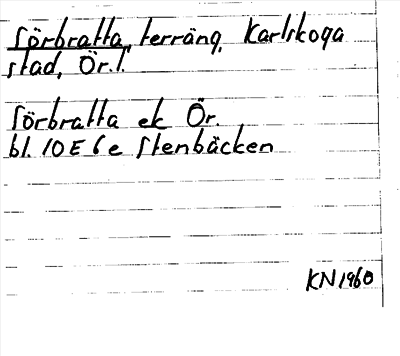 Sörbratta, terräng, Karlskoga
stad, Ör.l.
Sörbratta ek Ör.
bl. 10 E 6 e Stenbäcken
KN 1960